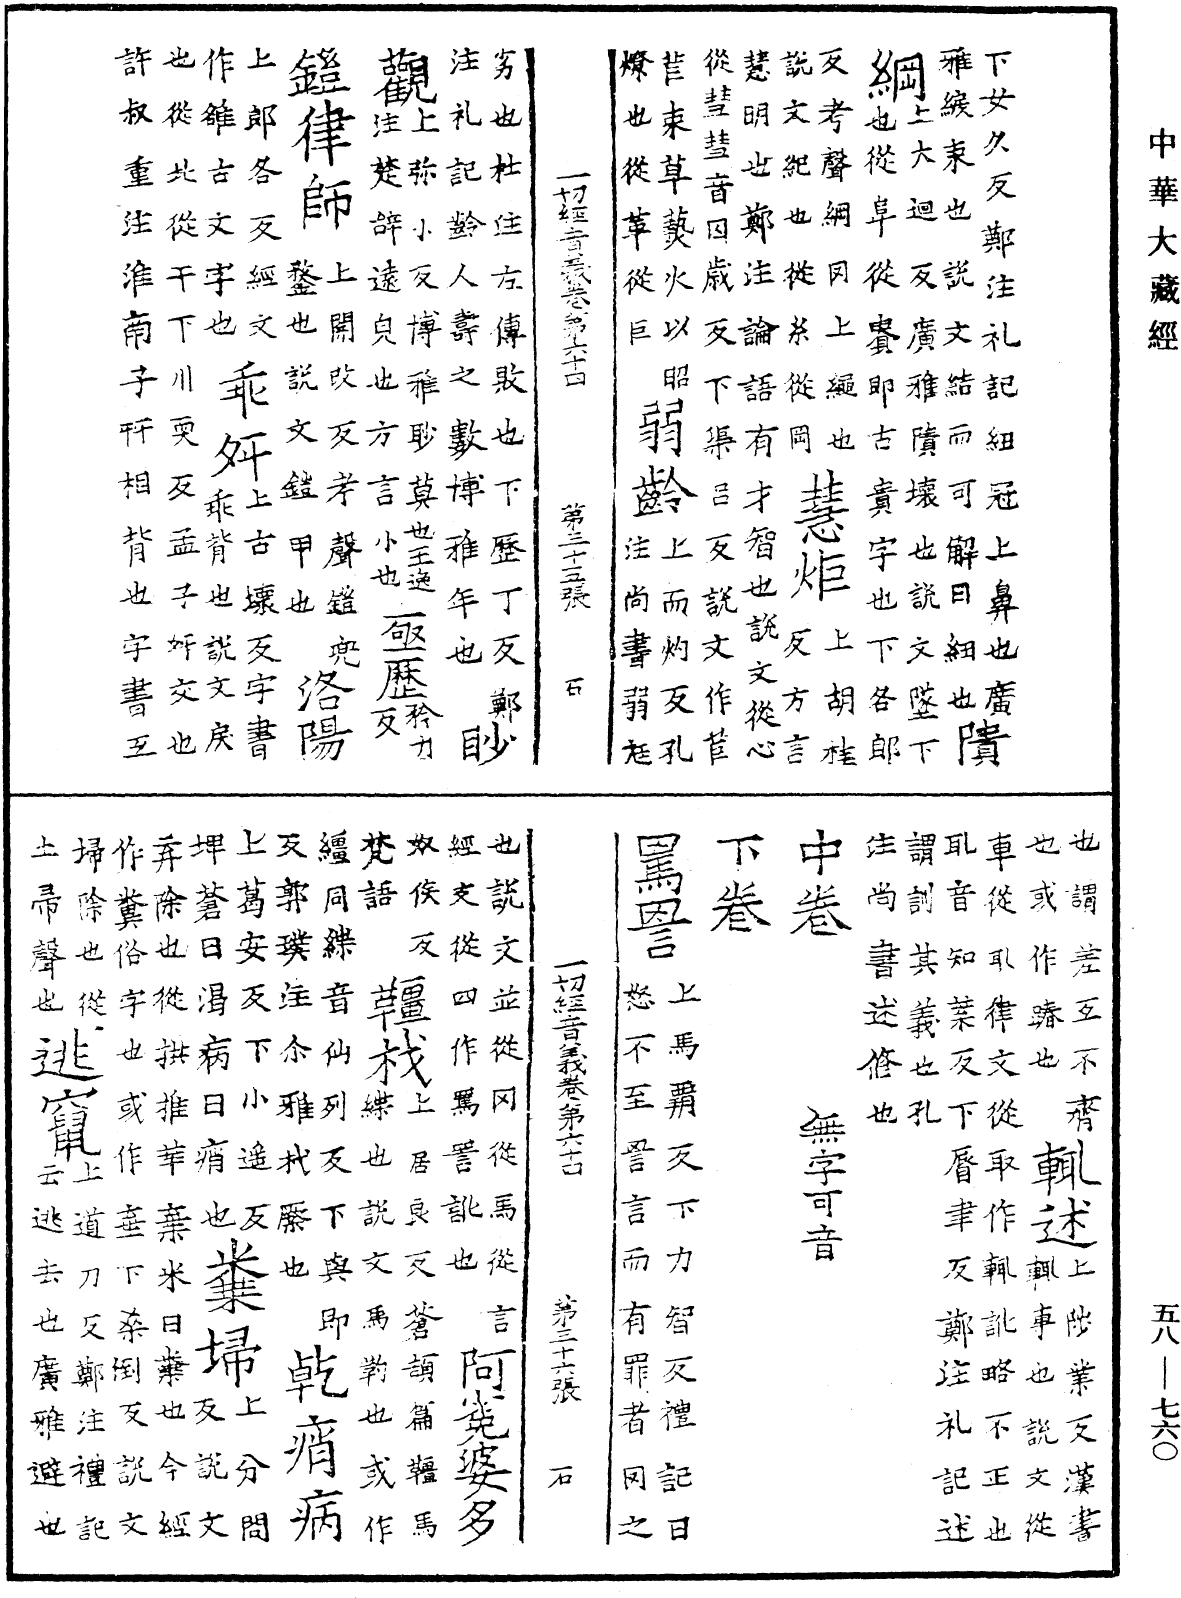 中華大藏經
下女久反鄭注礼記紐冠上鼻也廣
雅綟束也說文結而可解曰紐也 隤
綱 上大迴反廣雅隤壞也說文墜下
也從阜從貴即古賁字也下各郎
反考聲綱罔上繩也
說文紀也從糸從岡 慧炬 上胡桂反方言
慧明也鄭注論語有才智也說文從心
從彗彗音囚歲反下渠呂反說文作苣
苣束草爇火以照
燎也從草從巨 弱齡 上而灼反孔注尚書弱尪
一切經音義卷第六十四 第三十五張 石
劣也杜注左傳敗也下歷丁反鄭
注礼記齡人壽之數博雅年也 眇
觀 上弥小反博雅眇莫也王逸
注楚辭遠皃也方言小也 亟歷 矜力反
鎧律師 上開改反考聲鎧兜
鍪也說文鎧甲也 洛陽
上郎各反經文
作雒古文字也 乖舛 上古壞反字書
乖背也說文戾
也從北從干下川耎反孟子舛交也
許叔重注淮南子舛相背也字書互
也謂差互不齊
也或作踳也 輒述 上陟業反漢書
輒事也說文從
車從耴律文從取作輙訛略不正也
耴音知葉反下脣聿反鄭注礼記述
謂訓其義也孔
注尚書述修也
中卷 無字可音
下卷
罵詈 上馬覇反下力智反禮記曰
怒不至詈言而有罪者罔之
一切經音義卷第六十四 第三十六張 石
也說文並從冈從馬從言
經文從四作罵詈訛也 阿㝹婆多
奴侯反
梵語 韁杙 上居良反蒼頡篇韁馬
緤也說文馬靮也或作
繮同緤音仙列反下與即
反郭璞注尒雅杙橜也 乾痟病
上葛安反下小遥反
埤蒼曰渴病曰痟也 糞埽 上分問
反說文
棄除也從拱推華棄米曰糞也今經
作糞俗字也或作下桒倒反說文
埽除也從
土帚聲也 逃竄 上道刀反鄭注禮記
云逃去也廣雅避也
五八—七六〇